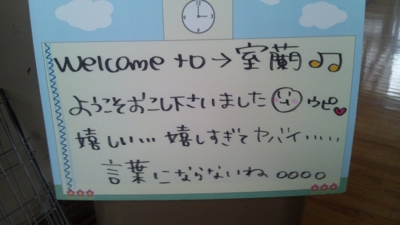 Welcome to→室蘭♫
ようこそおこし下さいました ウピ♥
嬉しい… 嬉しすぎてヤバイ……
言葉にならないね 。。。。